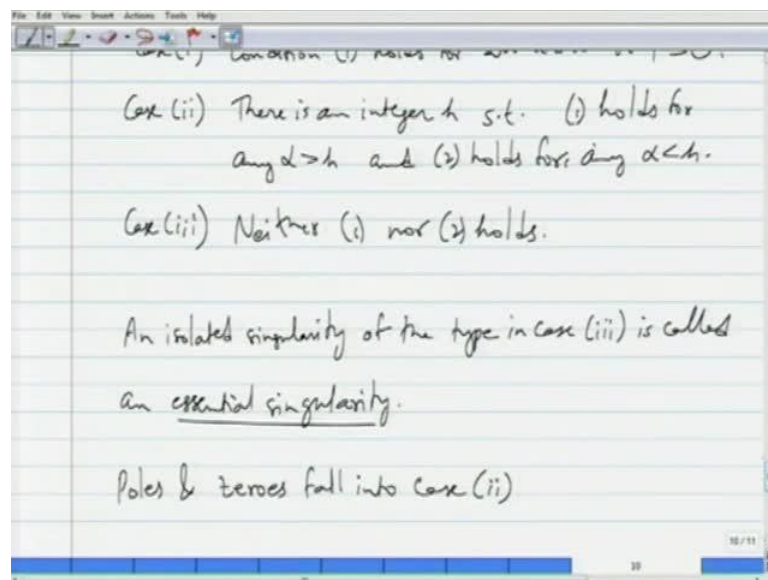 File Edit View Insert Actions Tools Help
Condition (1) holds for
Case (ii) There is an integer h s.t. (1) holds for
any α > h and (2) holds for any α < h.
Case (iii) Neither (1) nor (2) holds.
An isolated singularity of the type in case (iii) is called
an essential singularity.
Poles & zeroes fall into Case (ii)
10/11
10